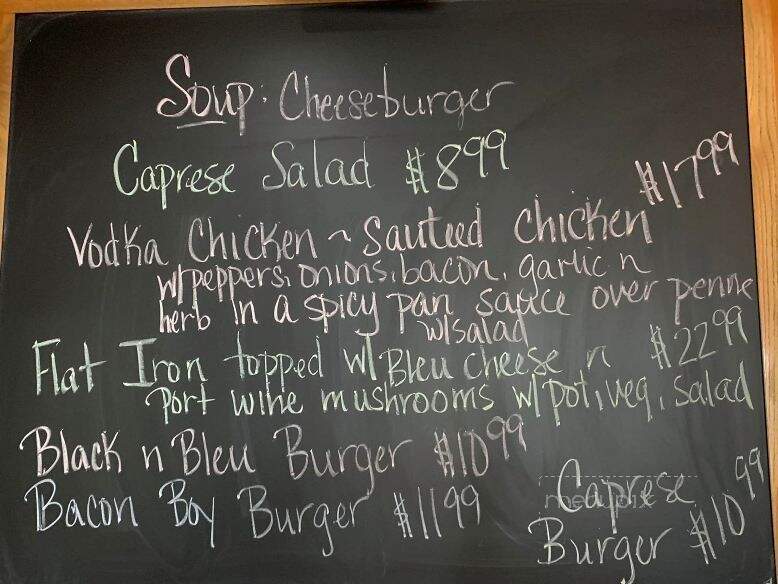 Soup: Cheeseburger
Caprese Salad $8.99
Vodka Chicken ~ Sauteed chicken $17.99
w/peppers, onions, bacon, garlic n
herb in a spicy pan sauce over penne
w/salad
Flat Iron topped w/ Bleu cheese n $22.99
Port wine mushrooms w/pot, veg, salad
Black n Bleu Burger $10.99
Bacon Boy Burger $11.99
Caprese
Burger $10.99
menupix